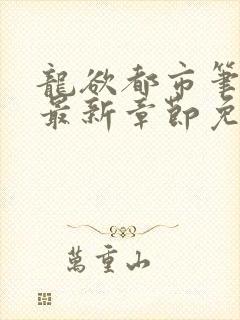 龍欲都市筆
最新章節免
萬重山